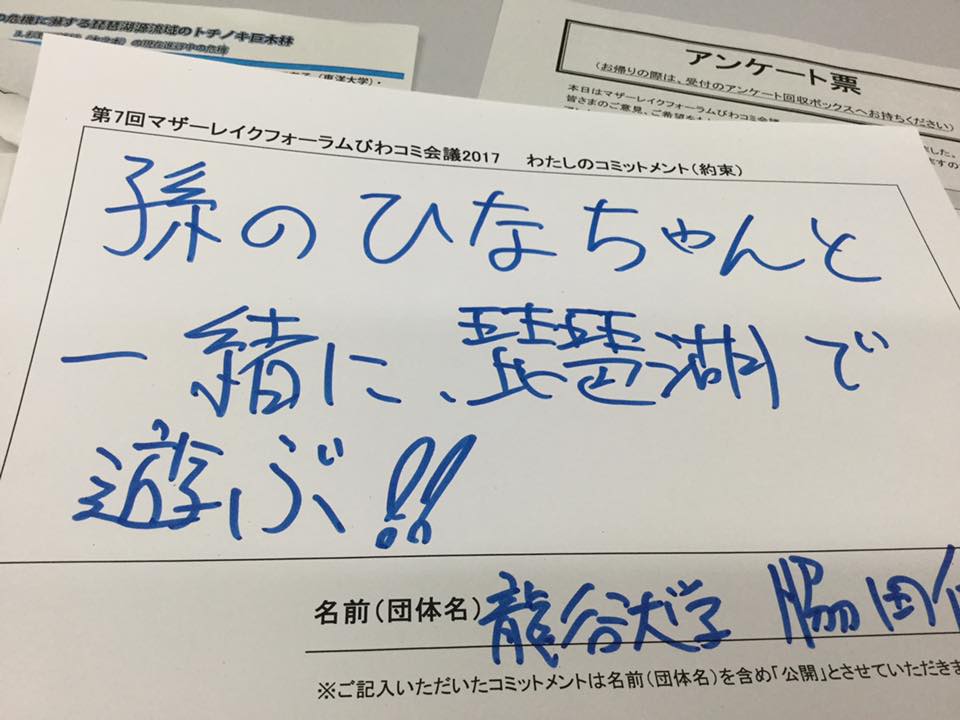 の危機に瀕する琵琶湖源流域のトチノキ巨木林
の現在進行中の危機
(東洋大学)・
アンケート票
(お帰りの際は、受付のアンケート回収ボックスへお持ちください)
本日はマザーレイクフォーラムびわコミ会議
皆さまのご意見、ご希望を
第7回マザーレイクフォーラムびわコミ会議2017 わたしのコミットメント(約束)
孫のひなちゃんと
一緒に、琵琶湖で
遊ぶ!!
名前(団体名) 龍谷大学 脇田
※ご記入いただいたコミットメントは名前(団体名)を含め「公開」とさせていただきま